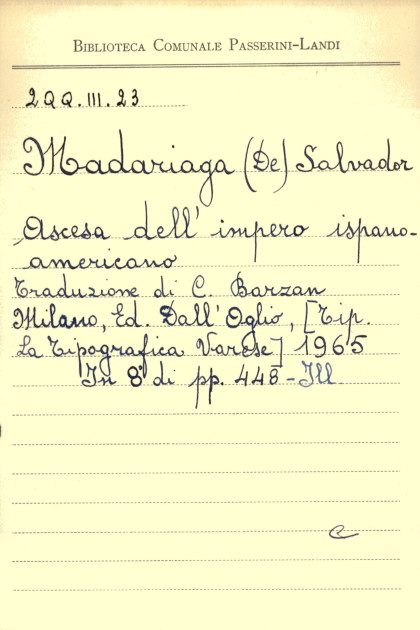 BIBLIOTECA COMUNALE PASSERINI-LANDI
2QQ.III.23
Madariaga (De) Salvador
Ascesa dell' impero ispano-
americano
Traduzione di C. Barzan
Milano, Ed. Dall'Oglio, [Tip.
La Tipografica Varese] 1965
In 8° di pp. 448 - Ill
C